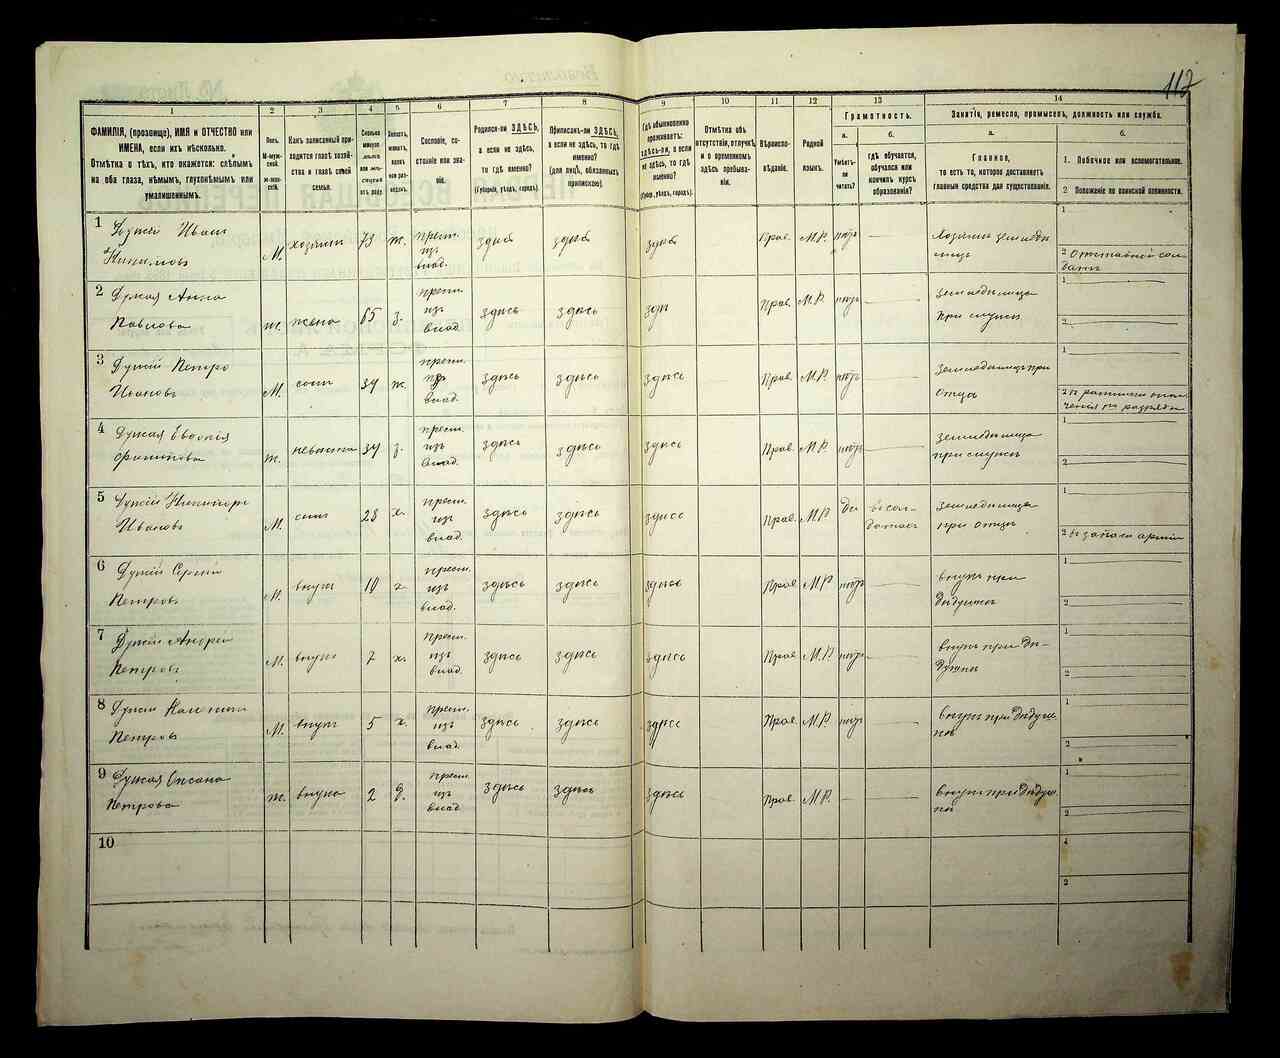 112
1
2
3
4
5
6
7
8
9
10
11
12
13
14
ФАМИЛІЯ, (прозвище), ИМЯ и ОТЧЕСТВО или
ИМЕНА, если ихъ нѣсколько.
Отмѣтка о тѣхъ, кто окажется: слѣпымъ
на оба глаза, нѣмымъ, глухонѣмымъ или
умалишеннымъ.
Полъ.
М-муж-
ской.
ж-жен-
скій.
Какъ записанный при-
ходится главѣ хозяй-
ства и главѣ своей
семьи.
Сколько
минуло
лѣтъ
или мѣ-
сяцевъ
отъ роду.
Холостъ,
женатъ,
вдовъ
или раз-
веденъ.
Сословіе, со-
стояніе или зва-
ніе.
Родился-ли ЗДѢСЬ,
а если не здѣсь,
то гдѣ именно?
(Губернія, уѣздъ, городъ).
Приписанъ-ли ЗДѢСЬ,
а если не здѣсь, то гдѣ
именно?
(для лицъ, обязанныхъ
припискою).
Гдѣ обыкновенно
проживаетъ:
здѣсь-ли, а если
не здѣсь, то гдѣ
именно?
(Губ., уѣздъ, городъ).
Отмѣтка объ
отсутствіи, отлучкѣ
и о временномъ
здѣсь пребыва-
ніи.
Вѣроиспо-
вѣданіе.
Родной
языкъ.
Грамотность.
а.
Умѣетъ-
ли
читать?
б.
гдѣ обучается,
обучался или
кончилъ курсъ
образованія?
Занятіе, ремесло, промыселъ, должность или служба.
а.
Главное,
то есть то, которое доставляетъ
главныя средства для существованія.
б.
1. Побочное или вспомогательное.
2 Положеніе по воинской повинности.
1 Иванъ
М. хозяинъ ж. крест. изъ влад. здѣсь здѣсь здѣсь Прав. М.Р. нѣтъ —
1
2 Отставной сол-
датъ
2 Дужая Анна
Павлова
ж. жена 65 з. крест. изъ влад. здѣсь здѣсь здѣсь Прав. М.Р. нѣтъ —
земледѣлица
при мужѣ
1
2
3 Дужій Петро
Ивановъ
М. сынъ 39 ж. крест. изъ влад. здѣсь здѣсь здѣсь Прав. М.Р. нѣтъ —
земледѣлецъ при
отцѣ
1
2
4 Дужая Евдокія
Филипова
ж. невѣстка 39 з. крест. изъ влад. здѣсь здѣсь здѣсь Прав. М.Р. нѣтъ —
земледѣлица
при мужѣ
1
2
5 Дужій Никифоръ
Ивановъ
М. сынъ 28 х. крест. изъ влад. здѣсь здѣсь здѣсь Прав. М.Р. да въ сол-
датахъ
земледѣлецъ
при отцѣ
1
2 въ запасѣ арміи
6 Дужій Сергій
Петровъ
М. внукъ 10 х. крест. изъ влад. здѣсь здѣсь здѣсь Прав. М.Р. нѣтъ —
внукъ при
дѣдушкѣ
1
2
7 Дужій Андрей
Петровъ
М. внукъ 7 х. крест. изъ влад. здѣсь здѣсь здѣсь Прав. М.Р. нѣтъ —
внукъ при дѣ-
душкѣ
1
2
8 Дужій
Петровъ
М. внукъ 5 х. крест. изъ влад. здѣсь здѣсь здѣсь Прав. М.Р. нѣтъ —
внукъ при дѣдуш-
кѣ
1
2
9 Дужая Оксана
Петрова
ж. внука 2 д. крест. изъ влад. здѣсь здѣсь здѣсь Прав. М.Р. — —
внука при дѣдуш-
кѣ
1
2
10
1
2